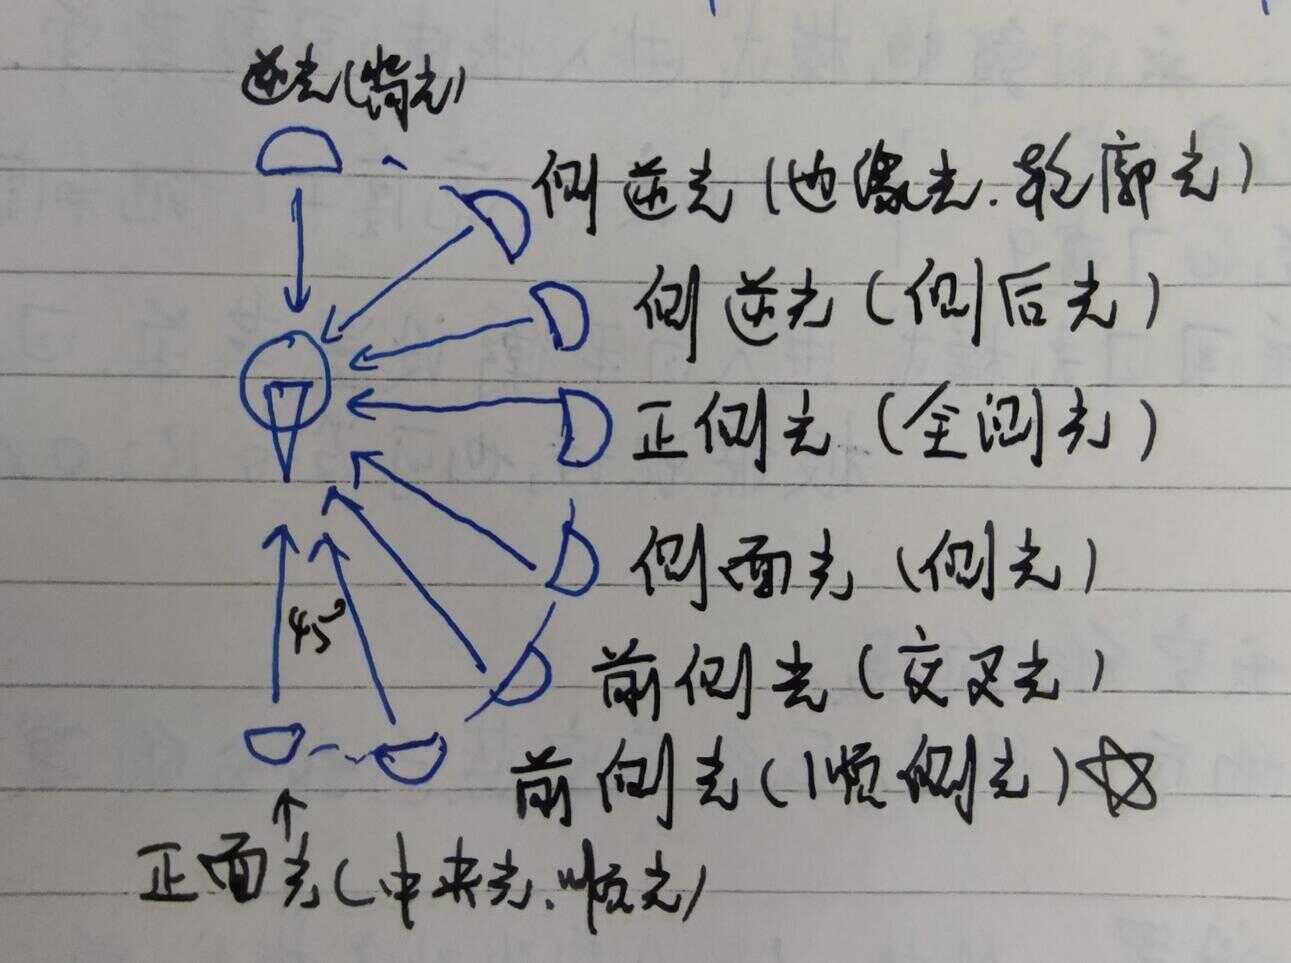 逆光(背光)
侧逆光(边缘光.轮廓光)
侧逆光(侧后光)
正侧光(全侧光)
侧面光(侧光)
45°
前侧光(交叉光)
前侧光(顺侧光)☆
正面光(中来光.顺光)